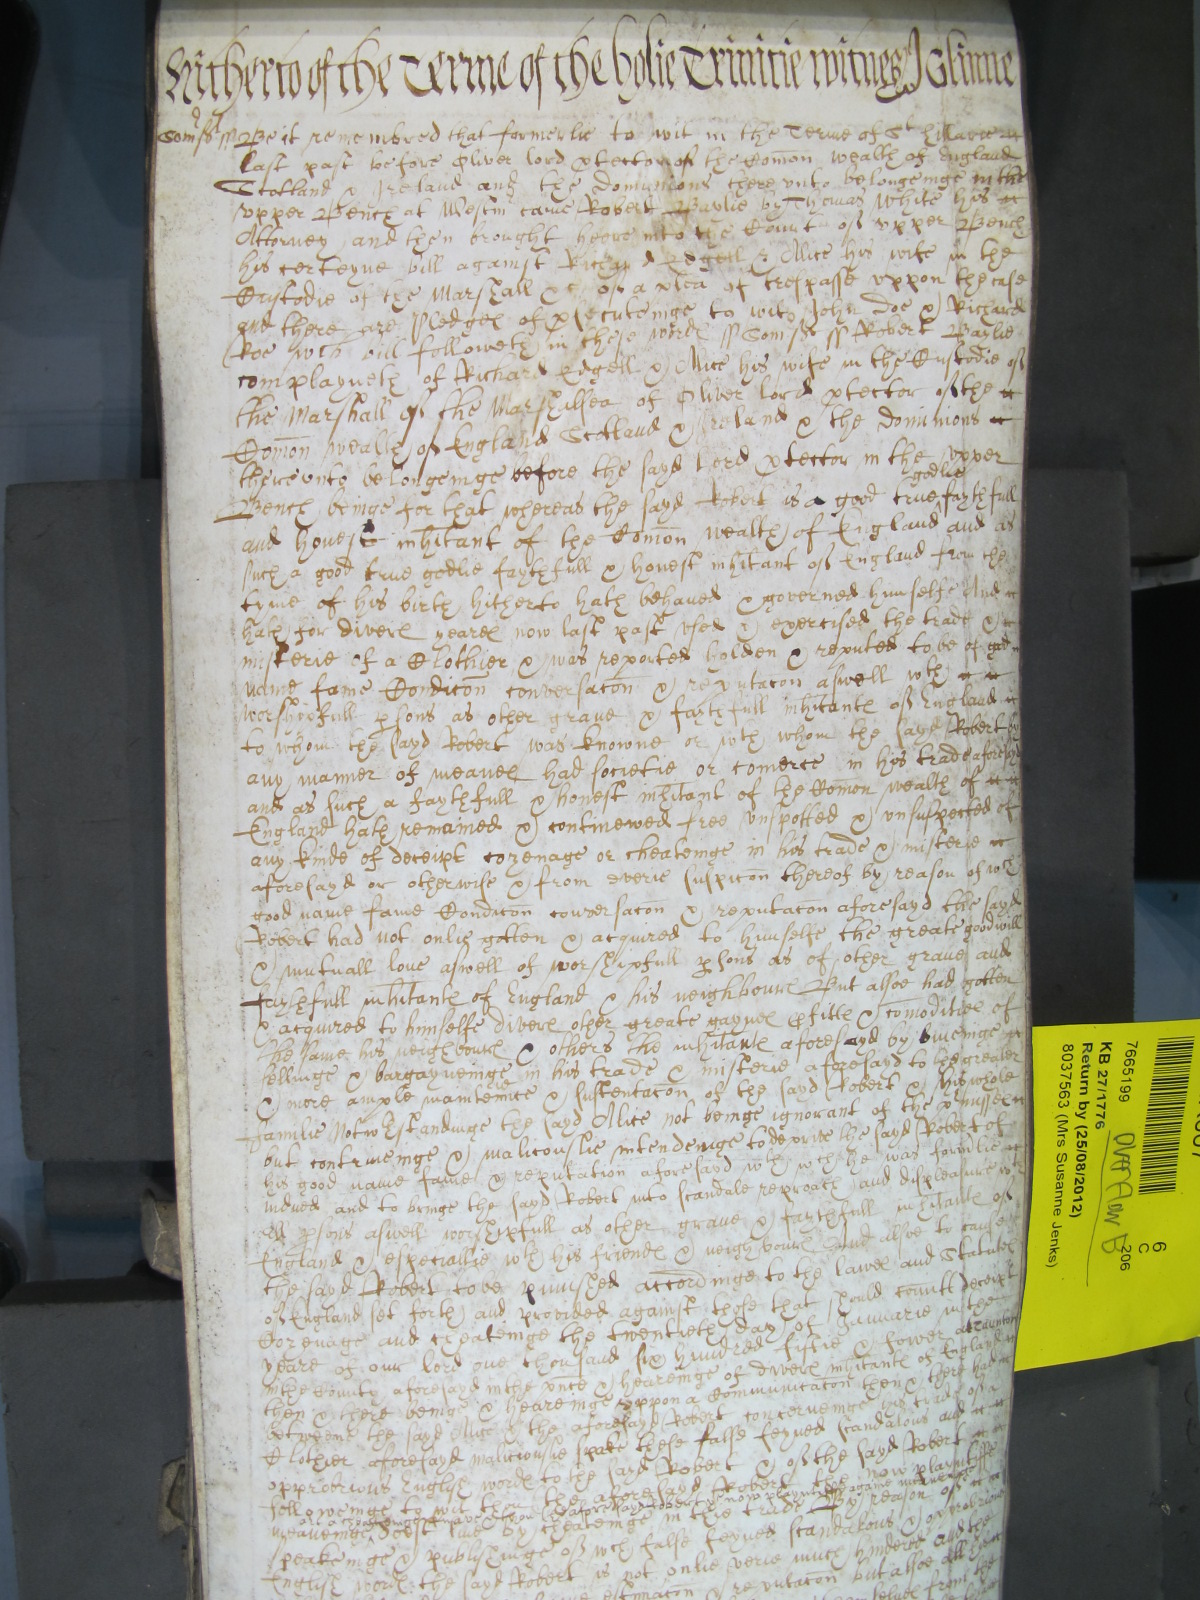 Hitherto of the Terme of the holie Trinitie witnes J Skinne
Somss ss Be it remembred that formerlie to wit in the Terme of St Hillarie
last past before Oliver lord ptector of the Comon wealth of England
Scotland & Ireland and the Dominions thereunto belongeinge in the
upper Bench at Westm came Robert Baylie by Thomas White his
Attorney and then brought heere into the Court of upper Bench
his certeyne bill against Richard Edgell & Alice his wife in the
Custodie of the Marshall &c of a plea of trespasse uppon the case
and there are pledges of psecuteinge to wit John Doe & Richard
Roe wch bill followeth in these words ss Somss ss Robert Baylie
complayneth of Richard Edgell & Alice his wife in the Custodie of
the Marshall of the Marshalsea of Oliver lord ptector of the
Comon wealth of England Scotland & Ireland & the dominions
thereunto belongeinge before the sayd Lord ptector in the upper
Bench beinge for that whereas the sayd Robert is a good true godlie faythfull
and honest inhitant of the Comon wealth of England and as
such a good true godlie faythfull & honest inhitant of England from the
tyme of his birth hitherto hath behaved & governed himselfe And
hath for divers yeares now last past used & exercised the trade &
misterie of a Clothier & was reported holden & reputed to be of good
name fame Condicon conversacon & reputacon aswell wth
worshipfull psons as other grave & faythfull inhitants of England
to whom the sayd Robert was knowne or wth whom the sayd Robert by
any manner of meanes had societie or comerce in his trade aforesayd
and as such a faythfull & honest inhitant of the Comon wealth of
England hath remained & continewed free unspotted & unsuspected of
any kinde of deceipt cozenage or cheateinge in his trade & misterie
aforesayd or otherwise & from everie suspicon thereof by reason of wch
good name fame Condicon conversacon & reputacon aforesayd the sayd
Robert had not onlie gotten & acquired to himselfe the greate goodwill
& mutuall love aswell of worshipfull psons as of other grave and
faythfull inhitants of England & his neighbours But alsoe had gotten
& acquired to himselfe divers other greate gaynes pfitts & comodities of
the same his neighbours & others the inhitants aforesayd by buyeinge
sellinge & bargayneinge in his trade & misterie aforesayd to the greater
& more ample maintenice & sustentacon of the sayd Robert & his whole
familie Notwthstandinge the sayd Alice not beinge ignorant of the pmisses
but contriveinge & maliciouslie intendeinge to deprive the sayd Robert of
his good name fame & reputation aforesayd wth wch he was formerlie
indued and to bringe the sayd Robert into scandale reproach and displeasure wth
all psons aswell worshipfull as other grave & faythfull inhitants of
England & especiallie wth his friends & neighbours And alsoe to cause
the sayd Robert to be punished accordinge to the lawes and Statutes
of England set forth and provided against those that should comitt deceipt
Cozenage and cheateinge the twentieth day of Januarie in the
yeare of our lord one thousand six hundred fiftie & fower at Taunton
in the County aforesayd in the psence & heareinge of divers inhitants of England
then & there beinge & heareinge uppon a Communicacon then & there had
betweene the sayd Alice & the aforesayd Robert concerneinge his trade of a
Clothier aforesayd maliciouslie spake these false feyned scandalous and
opprobrious English words to the sayd Robert & of the sayd Robert
followeinge to wit thou the aforesayd Robert the now playntiffe
art a cheateinge knave & thou the aforesayd Robert the now playntiffe againe
meaneinge doest live by cheateinge in thy trade By reason of
speakeinge & publisheinge of wch false feyned scandalous & opprobrious
English words the sayd Robert is not onlie verie much hindered and the
reputacon but alsoe all
6
C
7665199
206
KB 27/1776
Return by (25/08/2012)
8037563 (Mrs Susanne Jenks)